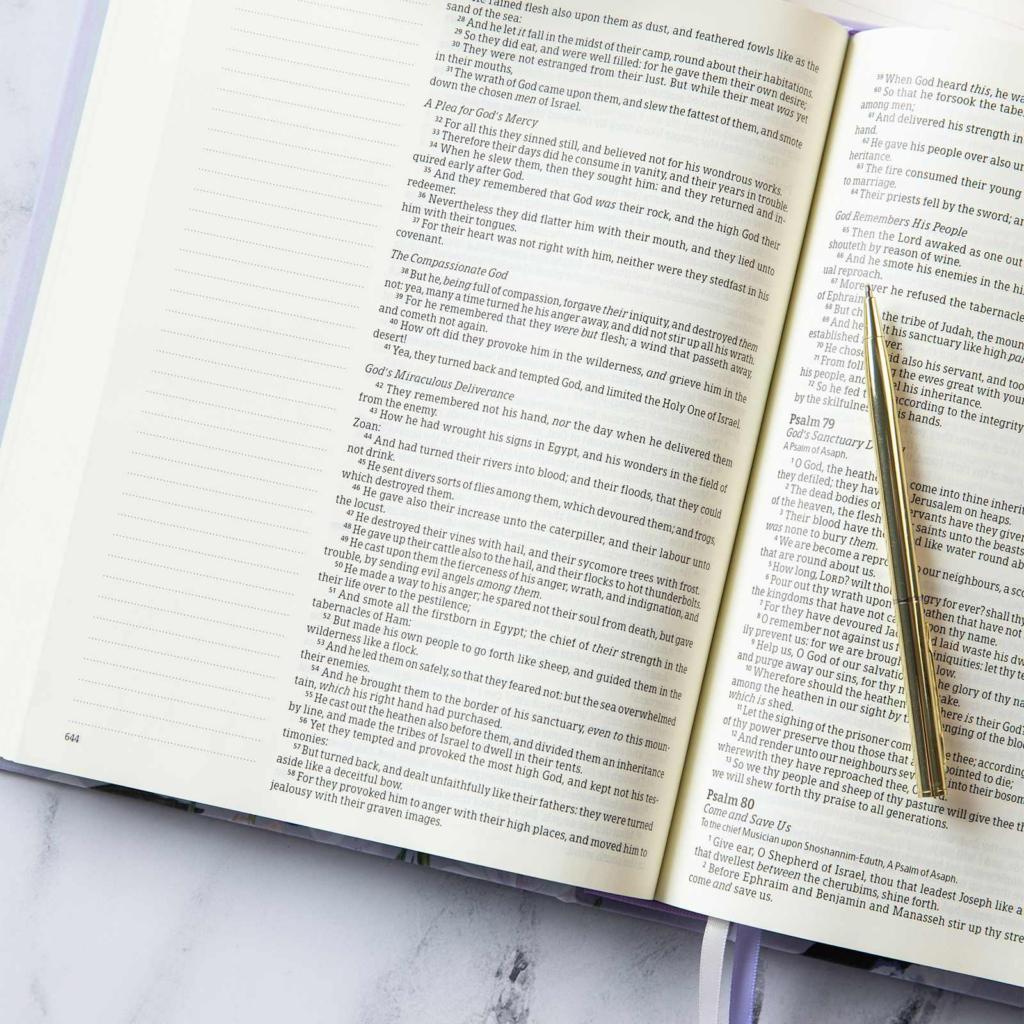 rained flesh also upon them as dust, and feathered fowls like as the
sand of the sea:
28 And he let it fall in the midst of their camp, round about their habitations.
29 So they did eat, and were well filled: for he gave them their own desire;
30 They were not estranged from their lust. But while their meat was yet
in their mouths,
31 The wrath of God came upon them, and slew the fattest of them, and smote
down the chosen men of Israel.
A Plea for God's Mercy
32 For all this they sinned still, and believed not for his wondrous works.
33 Therefore their days did he consume in vanity, and their years in trouble.
34 When he slew them, then they sought him: and they returned and in-
quired early after God.
35 And they remembered that God was their rock, and the high God their
redeemer.
36 Nevertheless they did flatter him with their mouth, and they lied unto
him with their tongues.
37 For their heart was not right with him, neither were they stedfast in his
covenant.
The Compassionate God
38 But he, being full of compassion, forgave their iniquity, and destroyed them
not: yea, many a time turned he his anger away, and did not stir up all his wrath.
39 For he remembered that they were but flesh; a wind that passeth away,
and cometh not again.
40 How oft did they provoke him in the wilderness, and grieve him in the
desert!
41 Yea, they turned back and tempted God, and limited the Holy One of Israel.
God's Miraculous Deliverance
42 They remembered not his hand, nor the day when he delivered them
from the enemy.
43 How he had wrought his signs in Egypt, and his wonders in the field of
Zoan:
44 And had turned their rivers into blood; and their floods, that they could
not drink.
45 He sent divers sorts of flies among them, which devoured them; and frogs,
which destroyed them.
46 He gave also their increase unto the caterpiller, and their labour unto
the locust.
47 He destroyed their vines with hail, and their sycomore trees with frost.
48 He gave up their cattle also to the hail, and their flocks to hot thunderbolts.
49 He cast upon them the fierceness of his anger, wrath, and indignation, and
trouble, by sending evil angels among them.
50 He made a way to his anger; he spared not their soul from death, but gave
their life over to the pestilence;
51 And smote all the firstborn in Egypt; the chief of their strength in the
tabernacles of Ham:
52 But made his own people to go forth like sheep, and guided them in the
wilderness like a flock.
53 And he led them on safely, so that they feared not: but the sea overwhelmed
their enemies.
54 And he brought them to the border of his sanctuary, even to this moun-
tain, which his right hand had purchased.
55 He cast out the heathen also before them, and divided them an inheritance
by line, and made the tribes of Israel to dwell in their tents.
56 Yet they tempted and provoked the most high God, and kept not his tes-
timonies:
57 But turned back, and dealt unfaithfully like their fathers: they were turned
aside like a deceitful bow.
58 For they provoked him to anger with their high places, and moved him to
jealousy with their graven images.
644
59 When God heard this, he wa
60 So that he forsook the tabe
among men;
61 And delivered his strength in
hand.
62 He gave his people over also un
heritance.
63 The fire consumed their young
to marriage.
64 Their priests fell by the sword; an
God Remembers His People
65 Then the Lord awaked as one out
shouteth by reason of wine.
66 And he smote his enemies in the hi
ual reproach.
67 Moreover he refused the tabernacle
of Ephraim
68 But ch the tribe of Judah, the moun
69 And he lt his sanctuary like high pa
established ver.
70 He chose id also his servant, and too
71 From foll g the ewes great with youn
his people, and el his inheritance.
72 So he fed t according to the integrity
by the skilfulness is hands.
Psalm 79
God's Sanctuary D y
A Psalm of Asaph.
1 O God, the heathe come into thine inherit
they defiled; they hav Jerusalem on heaps.
2 The dead bodies of ervants have they given
of the heaven, the flesh saints unto the beasts
3 Their blood have the d like water round ab
was none to bury them.
4 We are become a repro o our neighbours, a sco
that are round about us.
5 How long, LORD? wilt thou ngry for ever? shall thy
6 Pour out thy wrath upon eathen that have not
the kingdoms that have not ca pon thy name.
7 For they have devoured Jac d laid waste his dw
8 O remember not against us niquities: let thy te
ily prevent us: for we are brough low.
9 Help us, O God of our salvatio he glory of thy na
and purge away our sins, for thy n ake.
10 Wherefore should the heathen here is their God?
among the heathen in our sight by t nging of the bloo
which is shed.
11 Let the sighing of the prisoner com thee; according
of thy power preserve thou those that a pointed to die;
12 And render unto our neighbours sev into their bosom
wherewith they have reproached thee, O
13 So we thy people and sheep of thy pasture will give thee th
we will shew forth thy praise to all generations.
Psalm 80
Come and Save Us
To the chief Musician upon Shoshannim-Eduth, A Psalm of Asaph.
1 Give ear, O Shepherd of Israel, thou that leadest Joseph like a
that dwellest between the cherubims, shine forth.
2 Before Ephraim and Benjamin and Manasseh stir up thy stre
come and save us.